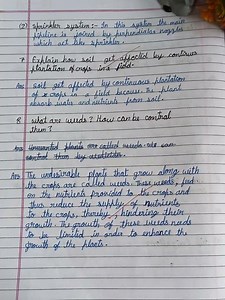 (2) Sprinkler system :- In this system the main
pipeline is joined by perpendicular nozzels
which act like sprinkler.
Explain how soil get affected by continuous
plantation of crops in a field.
Ans Soil get affected by continuous plantation
of crops in a field because the plant
absorb water and nutrients from soil.
Q what are weeds? How can be control
them?
Ans Unwanted plants are called weeds. we can
control them by
Ans The undesirable plants that grow along with
the crops are called weeds. These weeds, feed
on the nutrients provided to the crops and
thus reduce the supply of nutrients
to the crops, thereby, hindering their
growth. The growth of these weeds needs
to be limited in order to enhance the
growth of the plants.